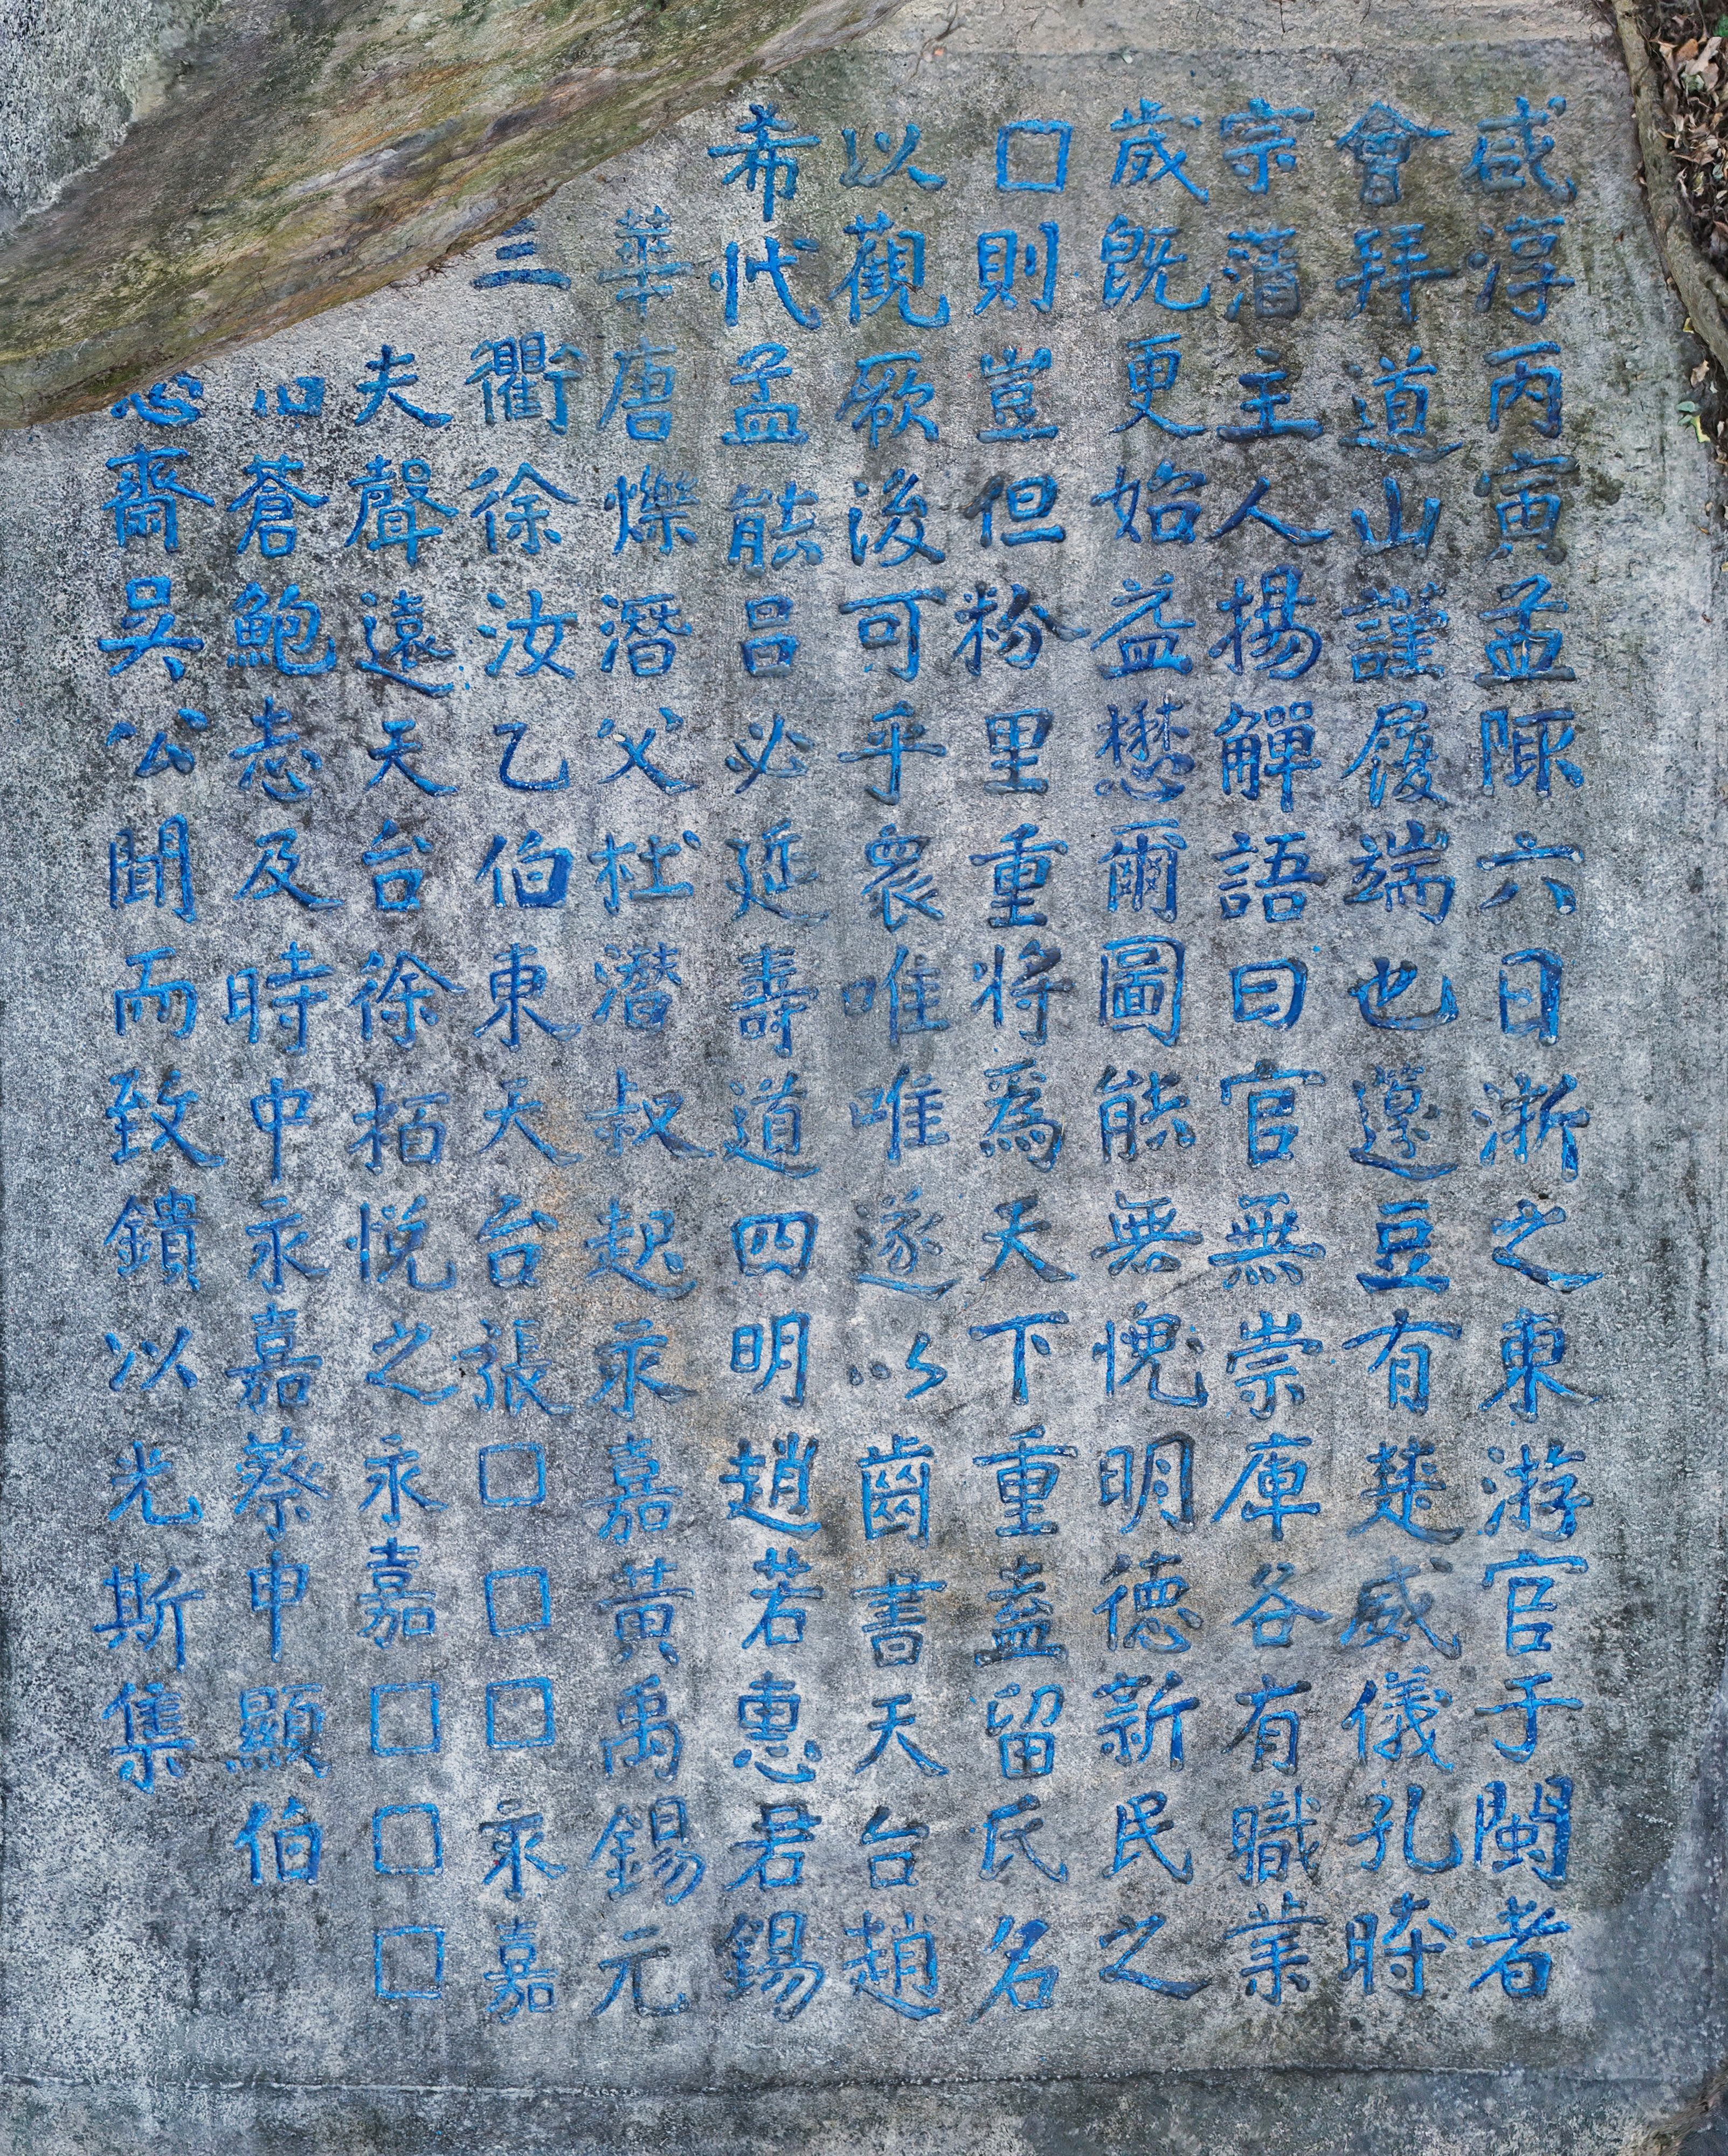 咸淳丙寅孟陬六日浙之東游官于閩者
會拜道山謹履端也籩豆有楚威儀孔時
宗藩主人揚觶語曰官無崇庳各有職業
歲既更始益懋爾圖能無愧明德新民之
□則豈但粉里重將為天下重盍留氏名
以觀厥後可乎衆唯唯遂以齒書天台趙
希代孟能呂必延壽道四明趙若惠君錫
華唐爍潛父杜潛叔起永嘉黃禹錫元
三衢徐汝乙伯東天台張□□□永嘉
夫聲遠天台徐栢悅之永嘉□□□
蒼鮑志及時中永嘉蔡申顯伯
齋吳公聞而致鐀以光斯集